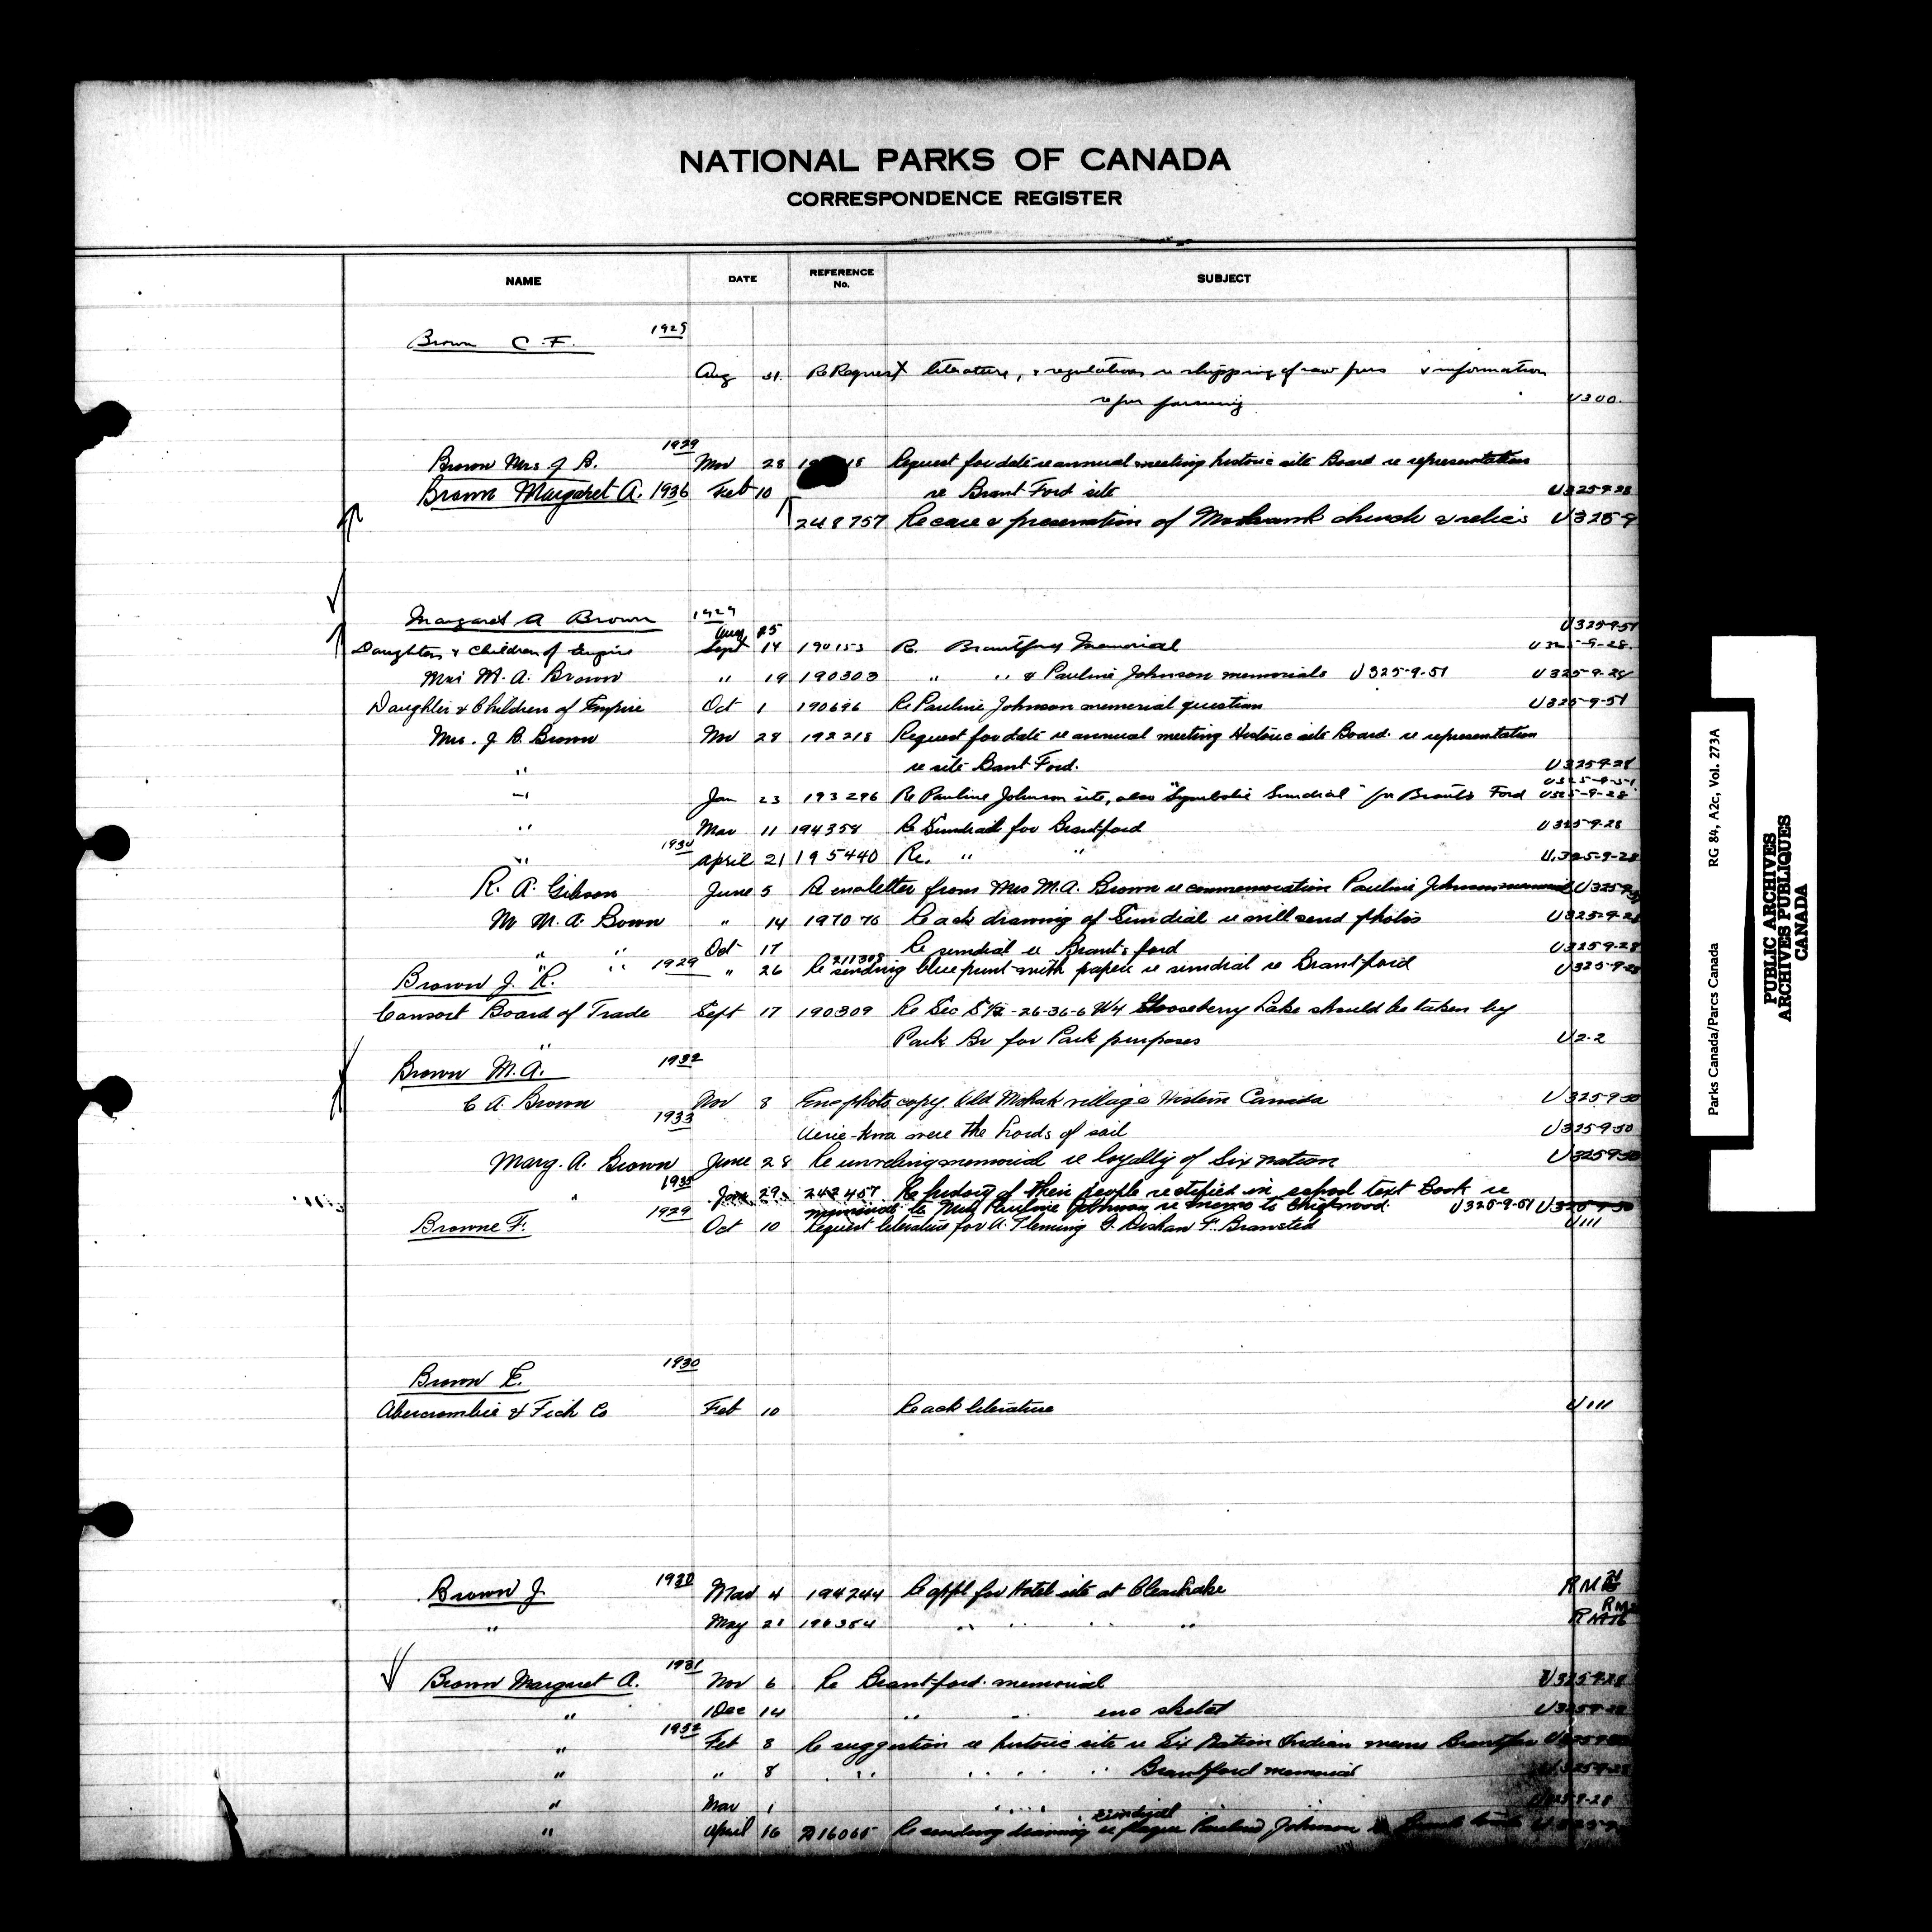 NATIONAL PARKS OF CANADA
CORRESPONDENCE REGISTER
NAME DATE REFERENCE No. SUBJECT
Brown C. F. 1929
Aug 31 Re Request literature, & regulations re shipping of raw furs & information
re fur farming U300.
Brown Mrs J B. 1929 Nov 28 Request for date re annual meeting historic site Board re representation
Brown Margaret A. 1936 Feb 10 re Brant Ford site U325-9-28
248757 Re care & preservation of Mohawk church & relics U325-9
Margaret A Brown 1929
Aug 25 U325-9-51
Daughters & Children of Empire Sept 14 190153 Re. Brantford Memorial U325-9-28.
Mrs M. A. Brown " 19 190303 " " & Pauline Johnson memorials U325-9-51 U325-9-28
Daughters & Children of Empire Oct 1 190696 Re Pauline Johnson memorial question U325-9-51
Mrs. J B. Brown Nov 28 192218 Request for date re annual meeting Historic site Board. re representation
" re site Bant Ford. U325-9-28
U325-9-51
" Jan 23 193296 Re Pauline Johnson site, also "Symbolic Sundial" for Brants Ford U325-9-28
" Mar 11 194358 Re Sundial for Brantford U325-9-28
" 1930 April 21 195440 Re. " " U.325-9-28
R. A. Gibson June 5 Re enc letter from Mrs M.A. Brown re commemoration Pauline Johnson memorial U325-9-51
M M. A. Bown " 14 197076 Re ack drawing of Sundial re will send photos U325-9-28
" " Oct 17 Re sundial re Brant's ford U325-9-28
" " " 26 211308 Re sending blue print with papers re sundial re Brantford U325-9-28
Brown J. R. 1929
Consort Board of Trade Sept 17 190309 Re Sec S½-26-36-6 W4 Gooseberry Lake should be taken by
" Park Br for Park purposes U2-2
Brown M.A. 1932
C A. Brown Nov 8 Enc photo copy Old Mohak village Western Canada U325-9-50
1933 were the Lords of soil U325-9-50
Marg. A. Brown June 28 Re unveiling memorial re loyalty of Six nation U325-9-50
" 1935 Jan 29 242457 Re history of their people rectified in school text Book re
memorial to Miss Pauline Johnson re memo to Chiefswood. U325-9-51 U325-9-50
Browne F. 1929 Oct 10 Request literature for A. Fleming F. Bransted U111
Brown E. 1930
Abercrombie & Fich Co Feb 10 Re ack literature U111
Brown J 1930 Mar 4 194244 Re appl for Hotel site at Clear Lake
" May 21 196354 " " " "
Brown Margaret A. 1931 Nov 6 Re Brant-ford memorial U325-9-28
" Dec 14 " " enc sketch U325-9-28
" 1932 Feb 8 Re suggestion re historic site re Six Nation Indian
" " 8 " " " Brantford memorial U325-9-28
" Mar 1 " " " U325-9-28
" April 16 216065 Re sending drawing sundial re Pauline Johnson
Parks Canada/Parcs Canada RG 84, A2c, Vol. 273A
PUBLIC ARCHIVES
ARCHIVES PUBLIQUES
CANADA